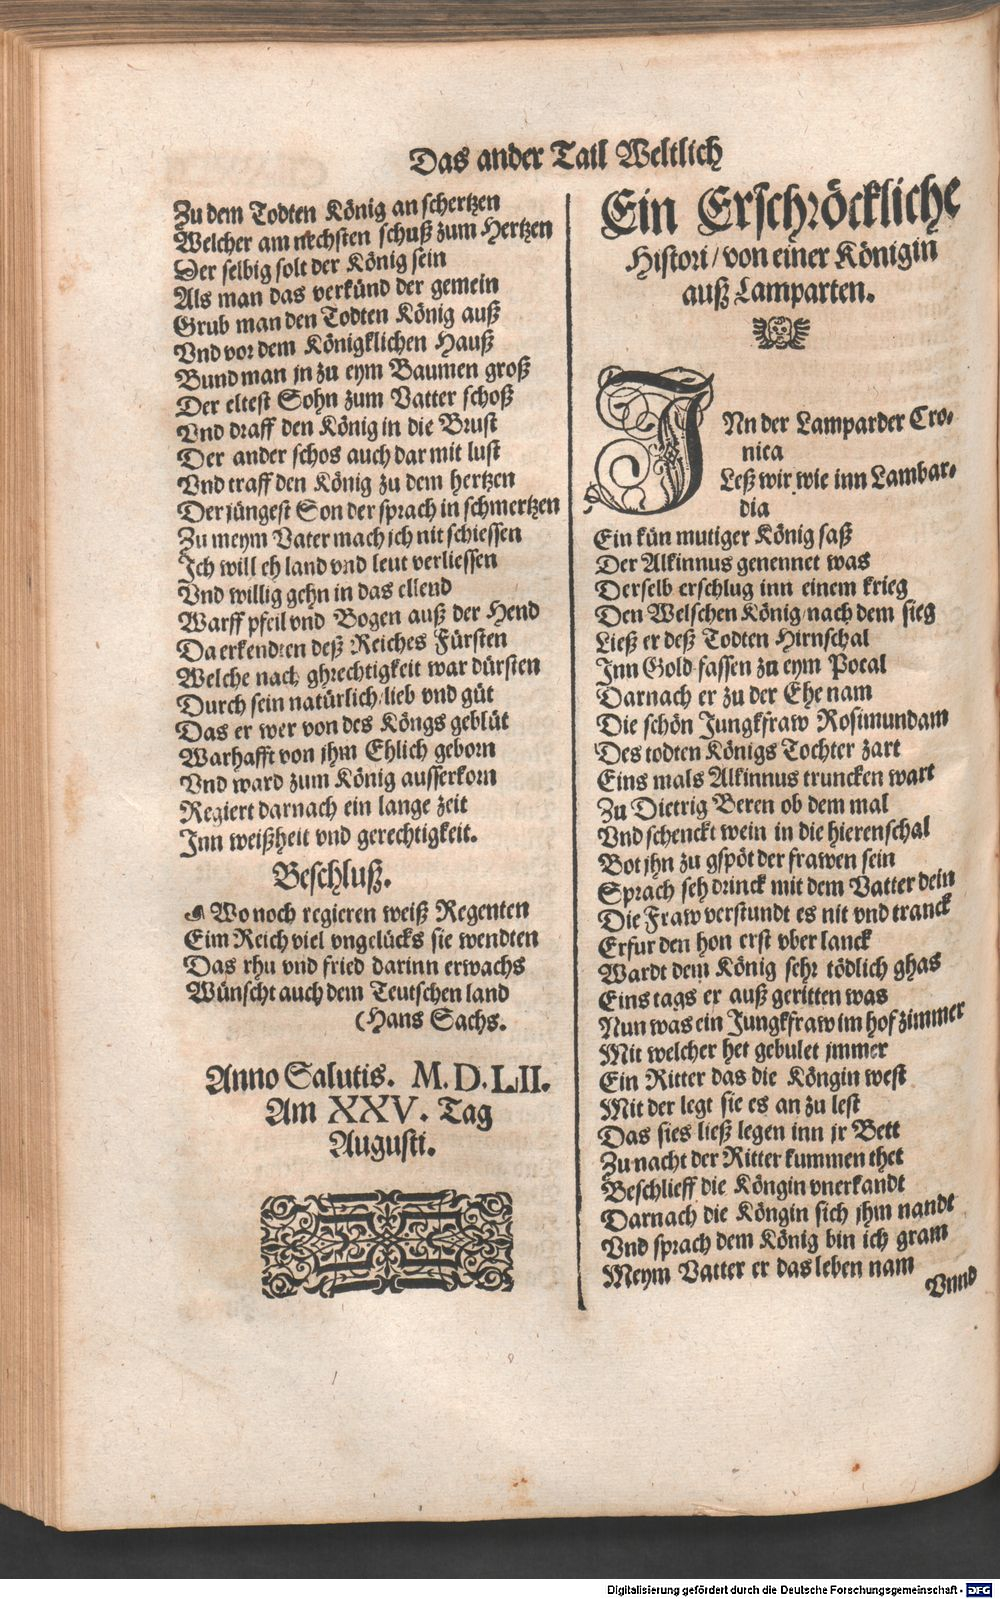 Das ander Tail Weltlich
Zu dem Todten König an schertzen
Welcher am nechsten schuß zum Hertzen
Der selbig solt der König sein
Als man das verkünd der gemein
Grub man den Todten König auß
Vnd vor dem Königklichen Hauß
Bund man jn zu eym Baumen groß
Der eltest Sohn zum Vatter schoß
Vnd draff den König in die Brust
Der ander schos auch dar mit lust
Vnd traff den König zu dem hertzen
Der jüngest Son der sprach in schmertzen
Zu meym Vater mach ich nit schiessen
Ich will eh land vnd leut verliessen
Vnd willig gehn in das ellend
Warff pfeil vnd Bogen auß der Hend
Da erkendten deß Reiches Fürsten
Welche nach ghrechtigkeit war dürsten
Durch sein natürlich lieb vnd güt
Das er wer von des Köngs geblüt
Warhafft von jhm Ehlich geborn
Vnd ward zum König ausserkorn
Regiert darnach ein lange zeit
Inn weißheit vnd gerechtigkeit.
Beschluß.
Wo noch regieren weiß Regenten
Eim Reich viel vngelücks sie wendten
Das rhu vnd fried darinn erwachs
Wünscht auch dem Teutschen land
(Hans Sachs.
Anno Salutis. M.D.LII.
Am XXV. Tag
Augusti.
Ein Erschröckliche
Histori / von einer Königin
auß Lamparten.
INn der Lamparder Cro-
nica
Leß wir wie inn Lambar-
dia
Ein kün mutiger König saß
Der Alkinnus genennet was
Derselb erschlug inn einem krieg
Den Welschen König / nach dem sieg
Ließ er deß Todten Hirnschal
Inn Gold fassen zu eym Pocal
Darnach er zu der Ehe nam
Die schön Jungkfraw Rosimundam
Des todten Königs Tochter zart
Eins mals Alkinnus truncken wart
Zu Dietrig Beren ob dem mal
Vnd schenckt wein in die hierenschal
Bot jhn zu gspöt der frawen sein
Sprach seh drinck mit dem Vatter dein
Die Fraw verstundt es nit vnd tranck
Erfur den hon erst vber lanck
Wardt dem König sehr tödlich ghas
Eins tags er auß geritten was
Nun was ein Jungkfraw im hof zimmer
Mit welcher het gebulet jmmer
Ein Ritter das die Köngin west
Mit der legt sie es an zu lest
Das sies ließ legen inn jr Bett
Zu nacht der Ritter kummen thet
Beschlieff die Köngin vnerkandt
Darnach die Köngin sich jhm nandt
Vnd sprach dem König bin ich gram
Meym Vatter er das leben nam
Vnnd
Digitalisierung gefördert durch die Deutsche Forschungsgemeinschaft - DFG